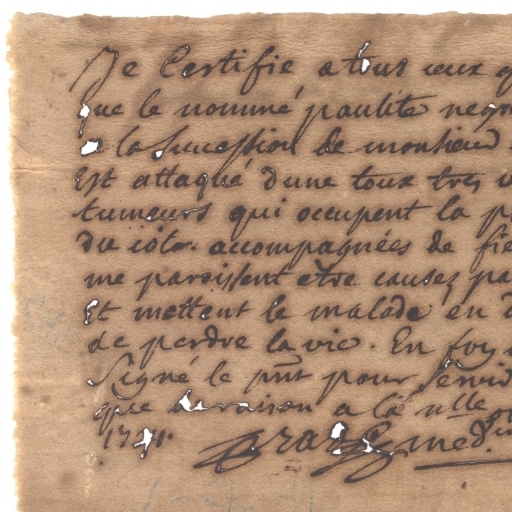 Je Certifie a tous ceux q
que le nommé paulite negr
a la Succession de monsieur
Est attaqué d'une toux tres v
tumeurs qui occupent la p
du côté. accompagnées de fie
me paroissent etre causez pa
Et mettent le malade en d
de perdre la vie. En foy
Signé le pnt pour Servir
que de raison a la nlle
med.in